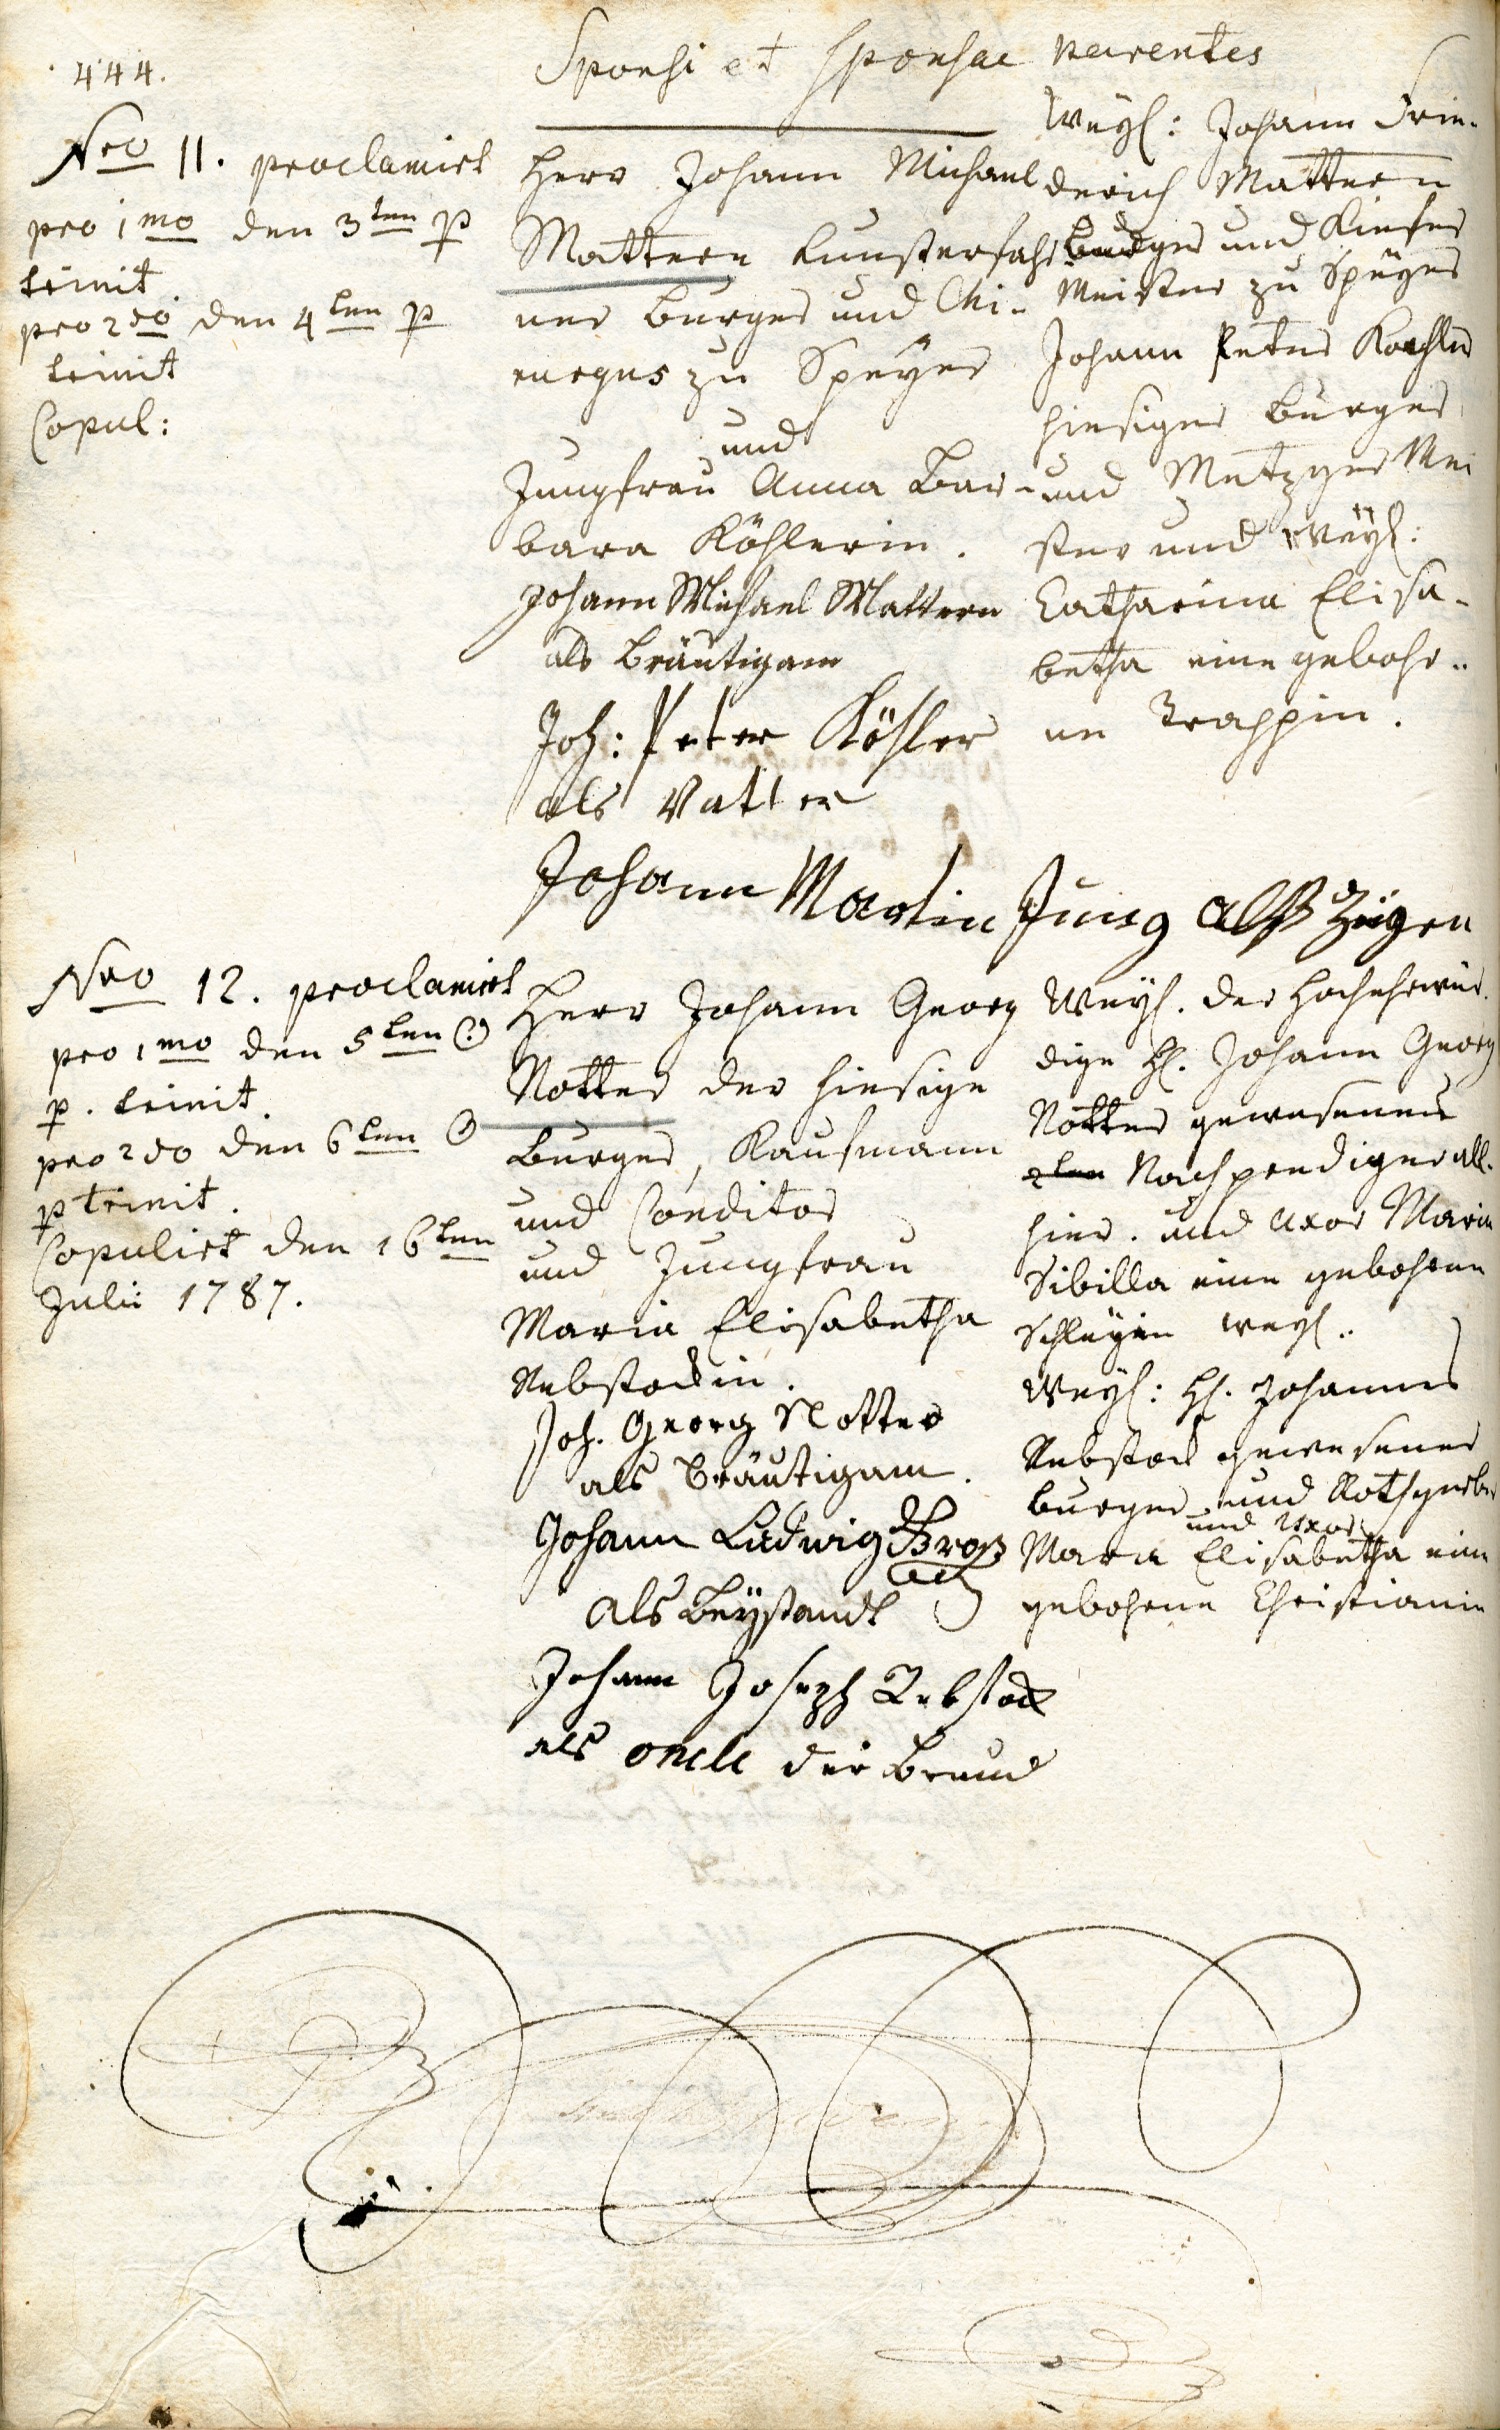 444.
Sponsi et Sponsae parentes
Nro 11. proclamirt
pro 1mo den 3ten p
trinit
pro 2do den 4ten p
trinit
Copul:
Herr Johann Michael
Mattern Kunsterfahr
ner Burger und Chi-
rurgus zu Speyer
und
Jungfrau Anna Bar-
bara Köhlerin.
Johann Michael Mattern
als Bräutigam
Joh: Peter Köhler
als Vatter
Johann Martin Jung alß Zeigen
Weyl: Johann Frie-
derich Mattern
burger und Kiefer
Meister zu Speyer
Johann Peter Koehler
hiesiger Burger
und Metzger Mei
ster und Weyl:
Catharina Elisa-
betha eine gebohr-
ne Trappin.
Nro 12. proclamirt
pro 1mo den 5ten ☉
p. trinit.
pro 2do den 6ten ☉
p trinit.
Copulirt den 16ten
Julii 1787.
Herr Johann Georg
Notter der hiesige
Burger, Kaufmann
und Conditor
und Jungfrau
Maria Elisabetha
Rebstockin.
Joh. Georg Notter
als Bräutigam.
Johann Ludwig
als Beystandt
Johann Joseph Rebstock
als oncle der Braud
Weyl. der Hochehrwür-
dige H. Johann Georg
Notter gewesener
2ten Nachprediger all-
hier. und Uxor Maria
Sibilla eine gebohrne
weyl..
Weyl: H. Johannes
Rebstock gewesener
burger und Rothgerber
und Uxor
Mara Elisabetha eine
gebohrne Christianin